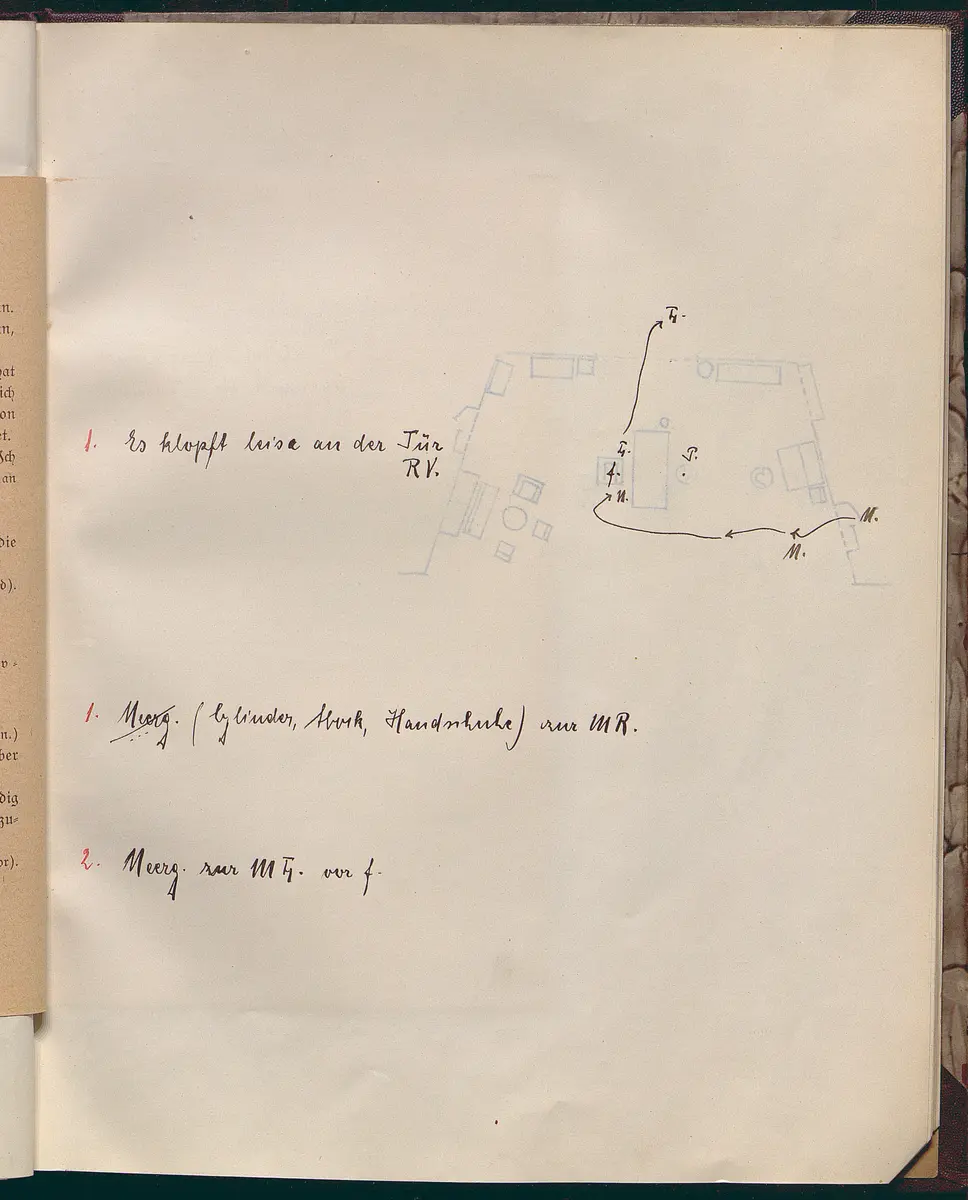 n.
n,
hat
ich
on
et.
Ich
an
die
d).
v-
n.)
ber
dig
zu-
or).
Tz.
1. Es klopft leise an der Tür
RV.
Tz.
f.
M.
P.
M.
M.
1. Meerg. (Cylinder, Stock, Handschuhe) zur MR.
2. Meerg. zur M Tz. vor f.